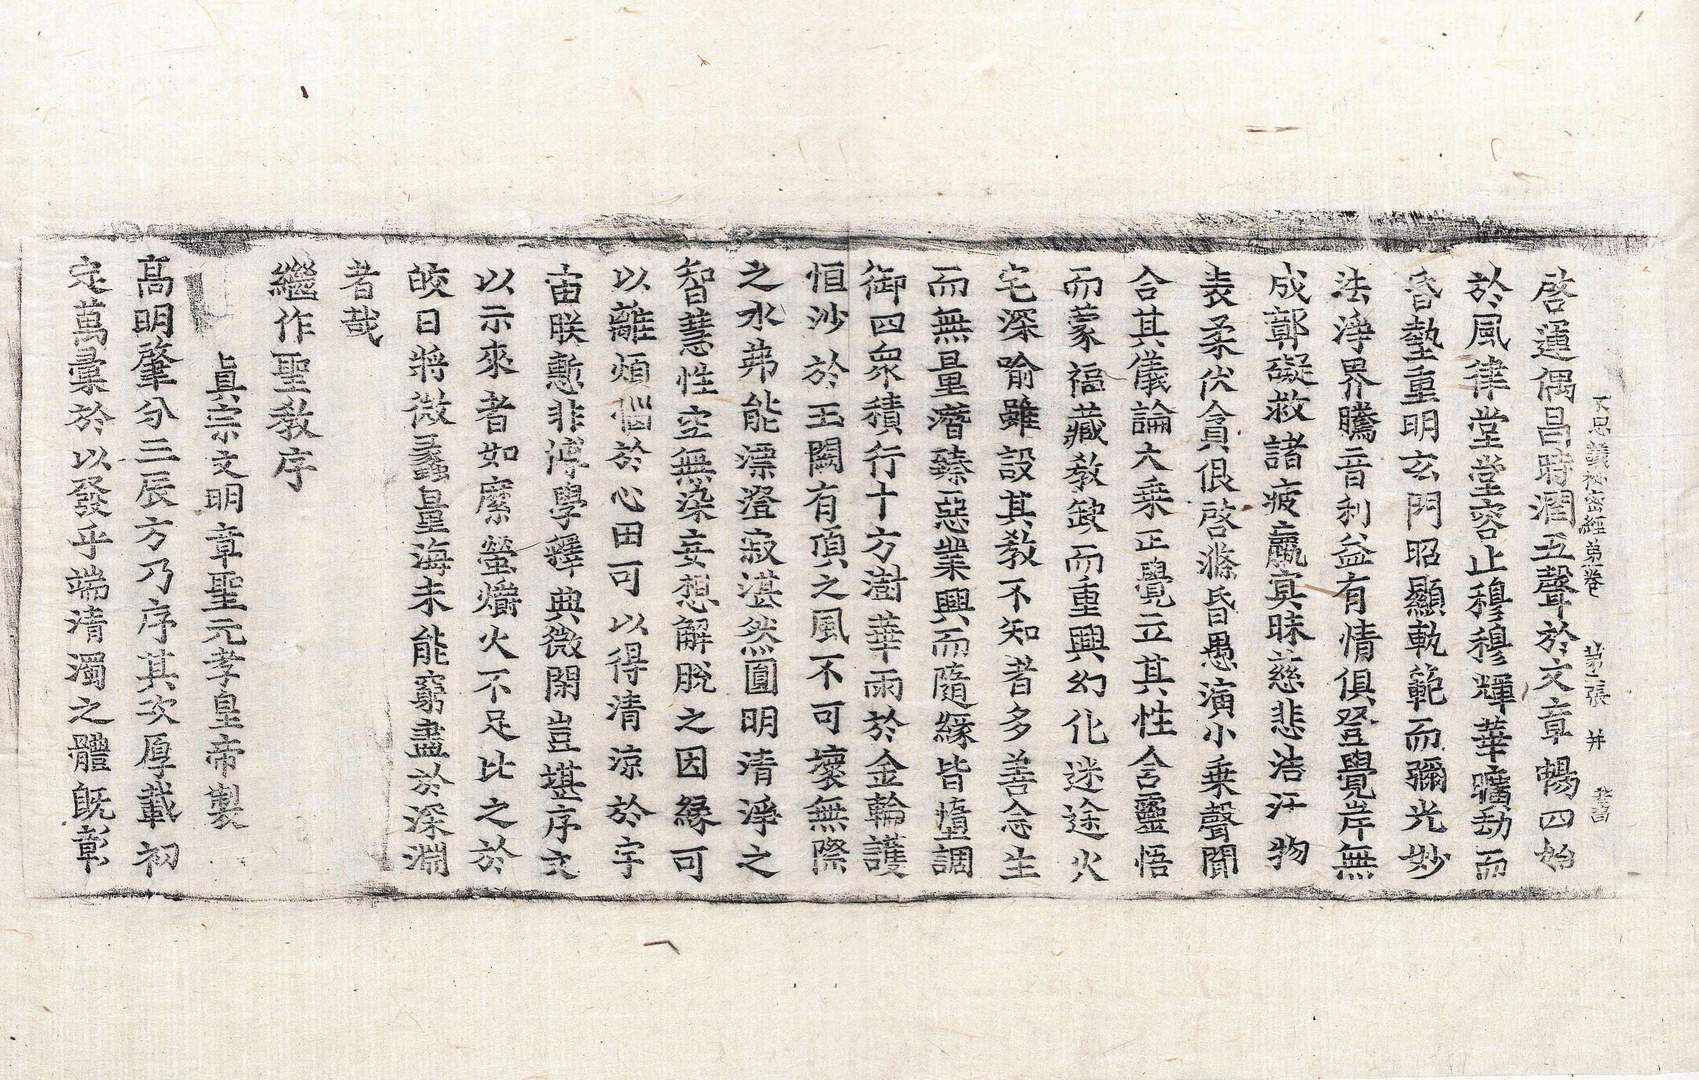 不思議祕密經第一卷 第二張 并 書
啓運偶昌時潤五聲於文章暢四始
於風律堂堂容止穆穆輝華曠劫而
昏墊重明玄門昭顯軌範而彌光妙
法淨界騰音利益有情俱登覺岸無
成鄣礙救諸疲羸冥昧慈悲浩汗物
表柔伏貪佷啓滌昏愚演小乘聲聞
合其儀論大乘正覺立其性含靈悟
而蒙福藏教缺而重興幻化迷途火
宅深喻雖設其教不知者多善念生
而無量潛臻惡業興而隨緣皆墮調
御四衆積行十方澍華雨於金輪護
恒沙於玉闕有頂之風不可壞無際
之水弗能漂澄寂湛然圓明清淨之
智慧性空無染妄想解脫之因緣可
以離煩惱於心田可以得清涼於宇
宙朕慙非博學釋典微閑豈堪序文
以示來者如縻螢爝火不足比之於
皎日將微蠡量海未能窮盡於深淵
者哉
繼作聖教序
眞宗文明章聖元孝皇帝製
高明肇分三辰方乃序其次厚載初
定萬彙於以發乎端清濁之體旣彰